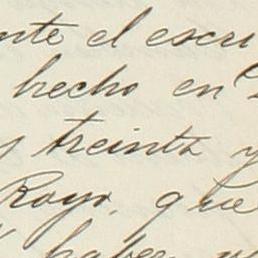 nte el escri
hecho en
y treinta y
Rayo, que
haber